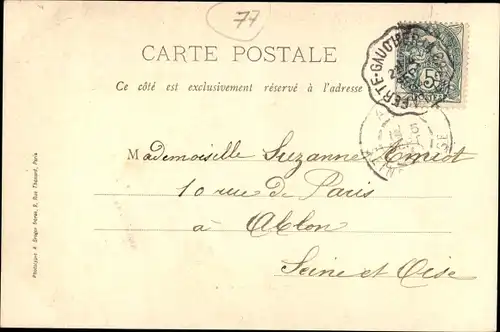 77
CARTE POSTALE
Ce côté est exclusivement réservé à l'adresse
5
Mademoiselle Suzanne Amiot
10 rue de Paris
à Ablon
Seine et Oise